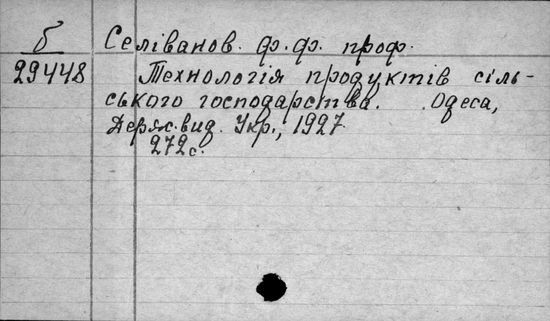 б Селіванов. Ф. Ф. проф.
29448 Технологія продуктів сіль-
ського господарства. Одеса,
Держ. вид. Укр., 1927
272 с.